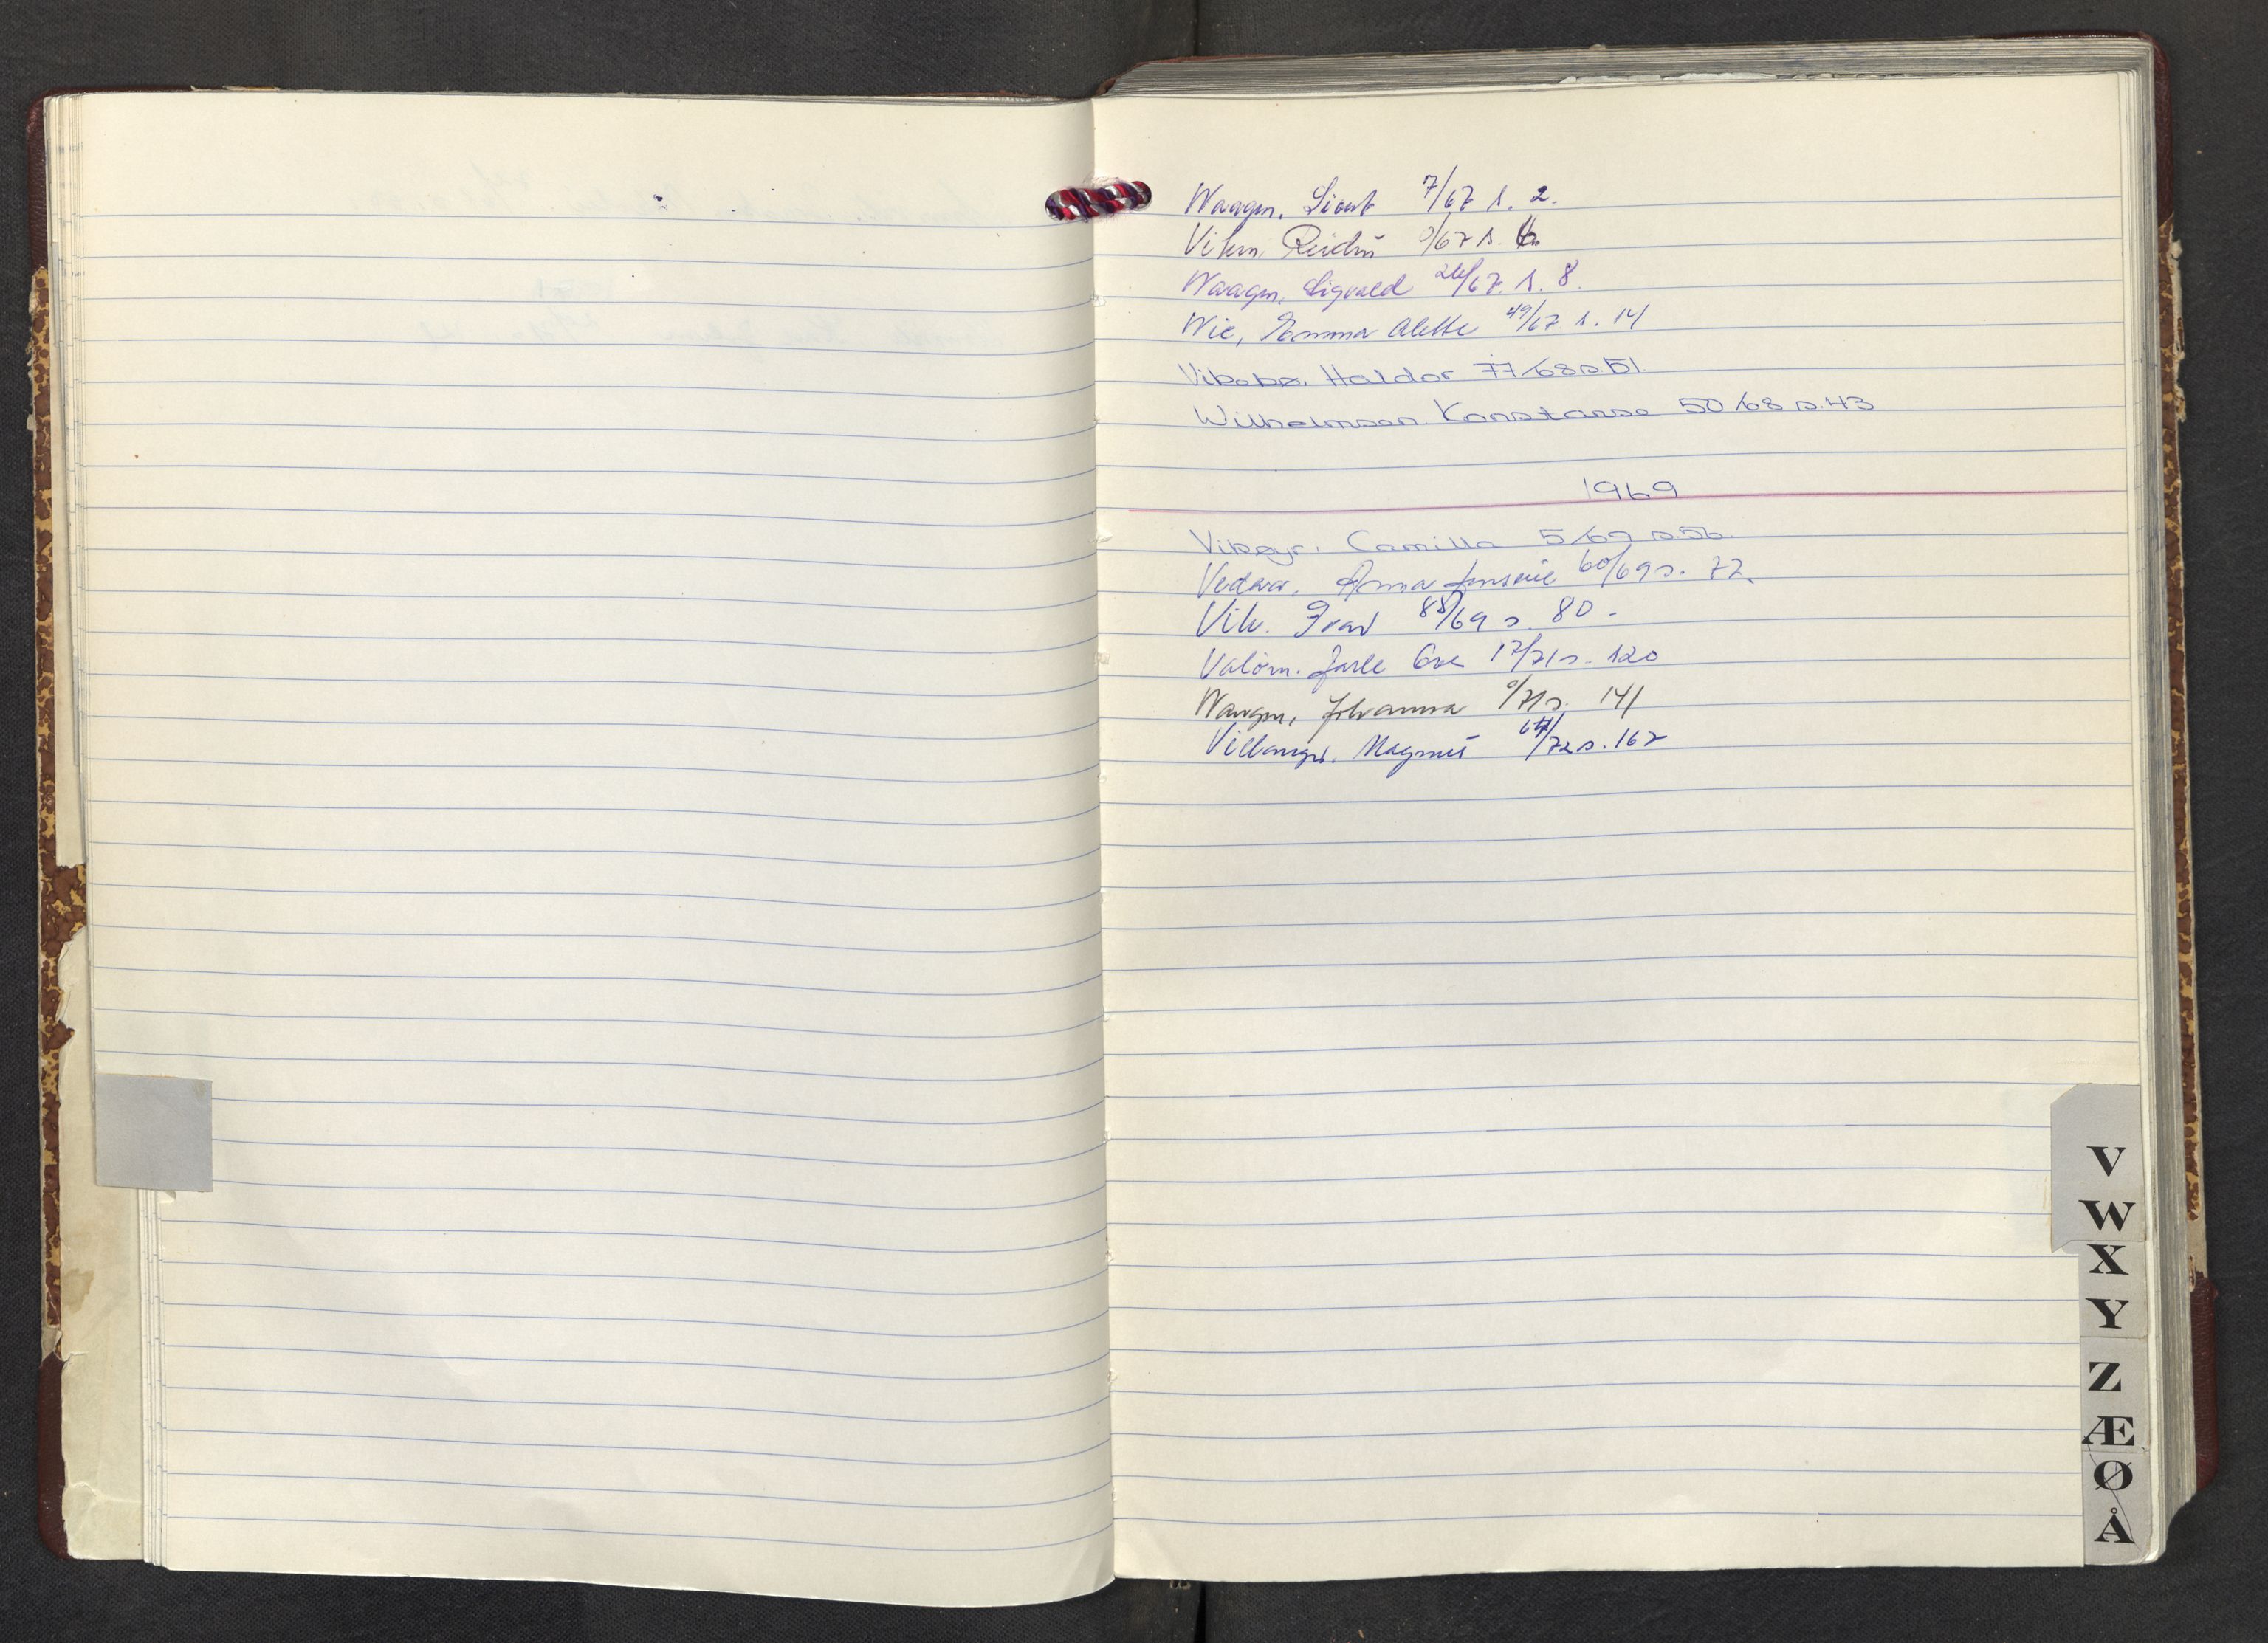 Waagen, Sivert 7/67 s. 2.
Viken, Reidun 9/67 s. 6
Waagen, Sigvald 26/67. s. 8.
Wie, Emma Alette 49/67 s. 14
Vikebø, Haldor 77/68 s. 51
Wilhelmsen Konstanse 50/68 s. 43
1969
Vikøyr, Camilla 5/69 s. 56.
Vedvar, Anna Jensine 60/69 s. 72.
Vik. Ivar 88/69 s. 80 -
Valöen. Jarle Ove 17/71 s. 120
Waagen, Johanna 0/71 s. 141
Villanger, Magnus 64/72 s. 162
V
W
X
Y
Z
Æ
Ø
Å